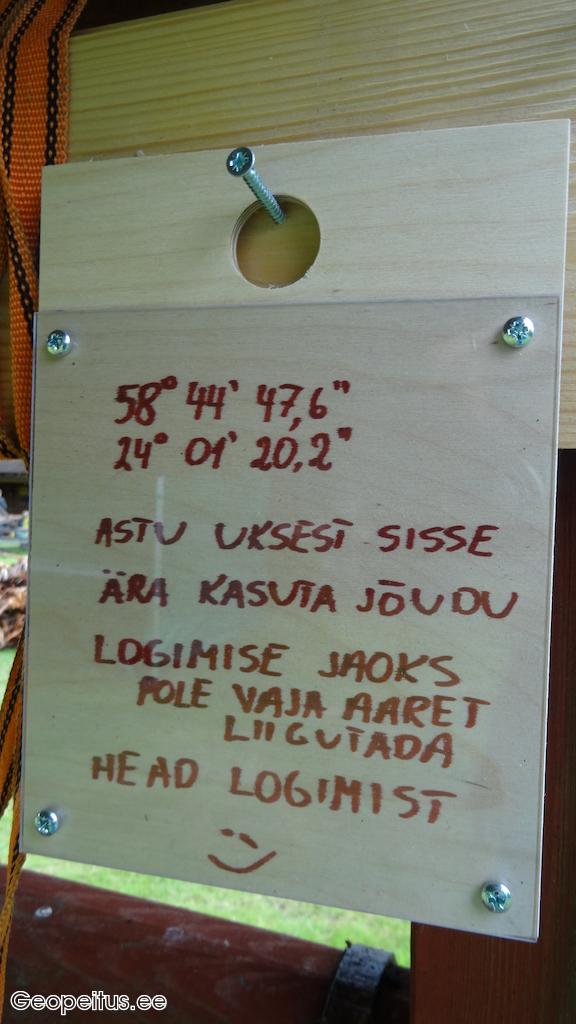 58° 44' 47,6"
24° 01' 20,2"
ASTU UKSEST SISSE
ÄRA KASUTA JÕUDU
LOGIMISE JAOKS
POLE VAJA AARET
LIIGUTADA
HEAD LOGIMIST
Geopeitus.ee